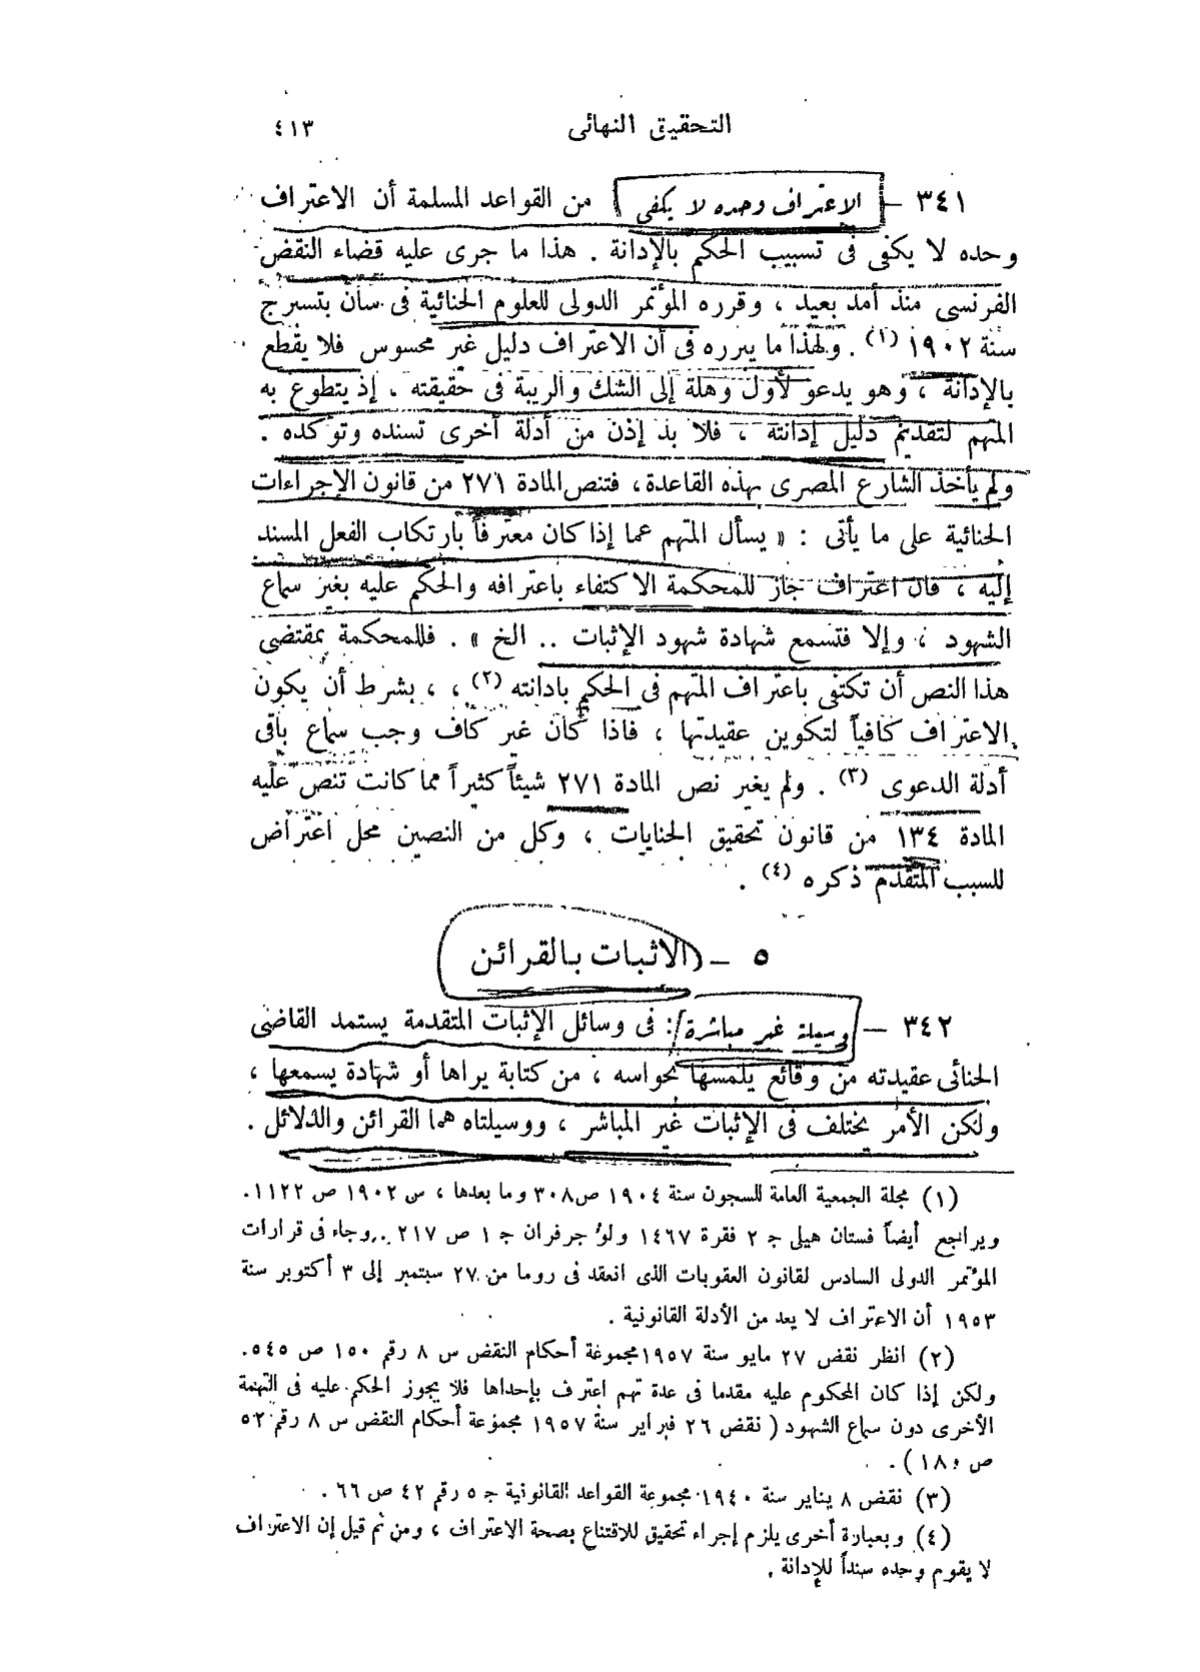 التحقيق النهائى ٤١٣
٣٤١ – الاعتراف وحده لا يكفى من القواعد المسلمة أن الاعتراف
وحده لا يكفى فى تسبيب الحكم بالإدانة . هذا ما جرى عليه قضاء النقض
الفرنسى منذ أمد بعيد ، وقرره المؤتمر الدولى للعلوم الجنائية فى سان بتسبرج
سنة ١٩٠٢ (١) . ولهذا ما يبرره فى أن الاعتراف دليل غير محسوس فلا يقطع
بالإدانة ، وهو يدعو لأول وهلة إلى الشك والريبة فى حقيقته ، إذ يتطوع به
المتهم لتقديم دليل إدانته ، فلا بد إذن من أدلة أخرى تسنده وتؤكده .
ولم يأخذ الشارع المصرى بهذه القاعدة ، فتنص المادة ٢٧١ من قانون الإجراءات
الجنائية على ما يأتى : « يسأل المتهم عما إذا كان معترفاً بارتكاب الفعل المسند
إليه ، فان اعترف جاز للمحكمة الاكتفاء باعترافه والحكم عليه بغير سماع
الشهود ، وإلا فتسمع شهادة شهود الإثبات .. الخ » . فللمحكمة بمقتضى
هذا النص أن تكتفى باعتراف المتهم فى الحكم بادانته (٢) ، ، بشرط أن يكون
الاعتراف كافياً لتكوين عقيدتها ، فاذا كان غير كاف وجب سماع باقى
أدلة الدعوى (٣) . ولم يغير نص المادة ٢٧١ شيئاً كثيراً مما كانت تنص عليه
المادة ١٣٤ من قانون تحقيق الجنايات ، وكل من النصين محل اعتراض
للسبب المتقدم ذكره (٤) .
٥ – الاثبات بالقرائن
٣٤٢ – وسيلة غير مباشرة : فى وسائل الإثبات المتقدمة يستمد القاضى
الجنائى عقيدته من وقائع يلمسها بحواسه ، من كتابة يراها أو شهادة يسمعها ،
ولكن الأمر يختلف فى الإثبات غير المباشر ، ووسيلتاه هما القرائن والدلائل .
(١) مجلة الجمعية العامة للسجون سنة ١٩٠٤ ص٣٠٨ وما بعدها ، س ١٩٠٢ ص ١١٢٢ .
ويراجع أيضاً فستان هيلى ج ٢ فقرة ١٤٦٧ ولو جرفران ج ١ ص ٢١٧ .. وجاء فى قرارات
المؤتمر الدولى السادس لقانون العقوبات الذى انعقد فى روما من ٢٧ سبتمبر إلى ٣ أكتوبر سنة
١٩٥٣ أن الاعتراف لا يعد من الأدلة القانونية .
(٢) انظر نقض ٢٧ مايو سنة ١٩٥٧ مجموعة أحكام النقض س ٨ رقم ١٥٠ ص ٥٤٥ .
ولكن إذا كان المحكوم عليه مقدما فى عدة تهم اعترف بإحداها فلا يجوز الحكم عليه فى التهمة
الأخرى دون سماع الشهود ( نقض ٢٦ فبراير سنة ١٩٥٧ مجموعة أحكام النقض س ٨ رقم ٥٢
ص ) .
(٣) نقض ٨ يناير سنة ١٩٤٠ مجموعة القواعد القانونية ج ٥ رقم ٤٢ ص ٦٦ .
(٤) وبعبارة أخرى يلزم إجراء تحقيق للاقتناع بصحة الاعتراف ، ومن ثم قيل إن الاعتراف
لا يقوم وحده سنداً للإدانة .